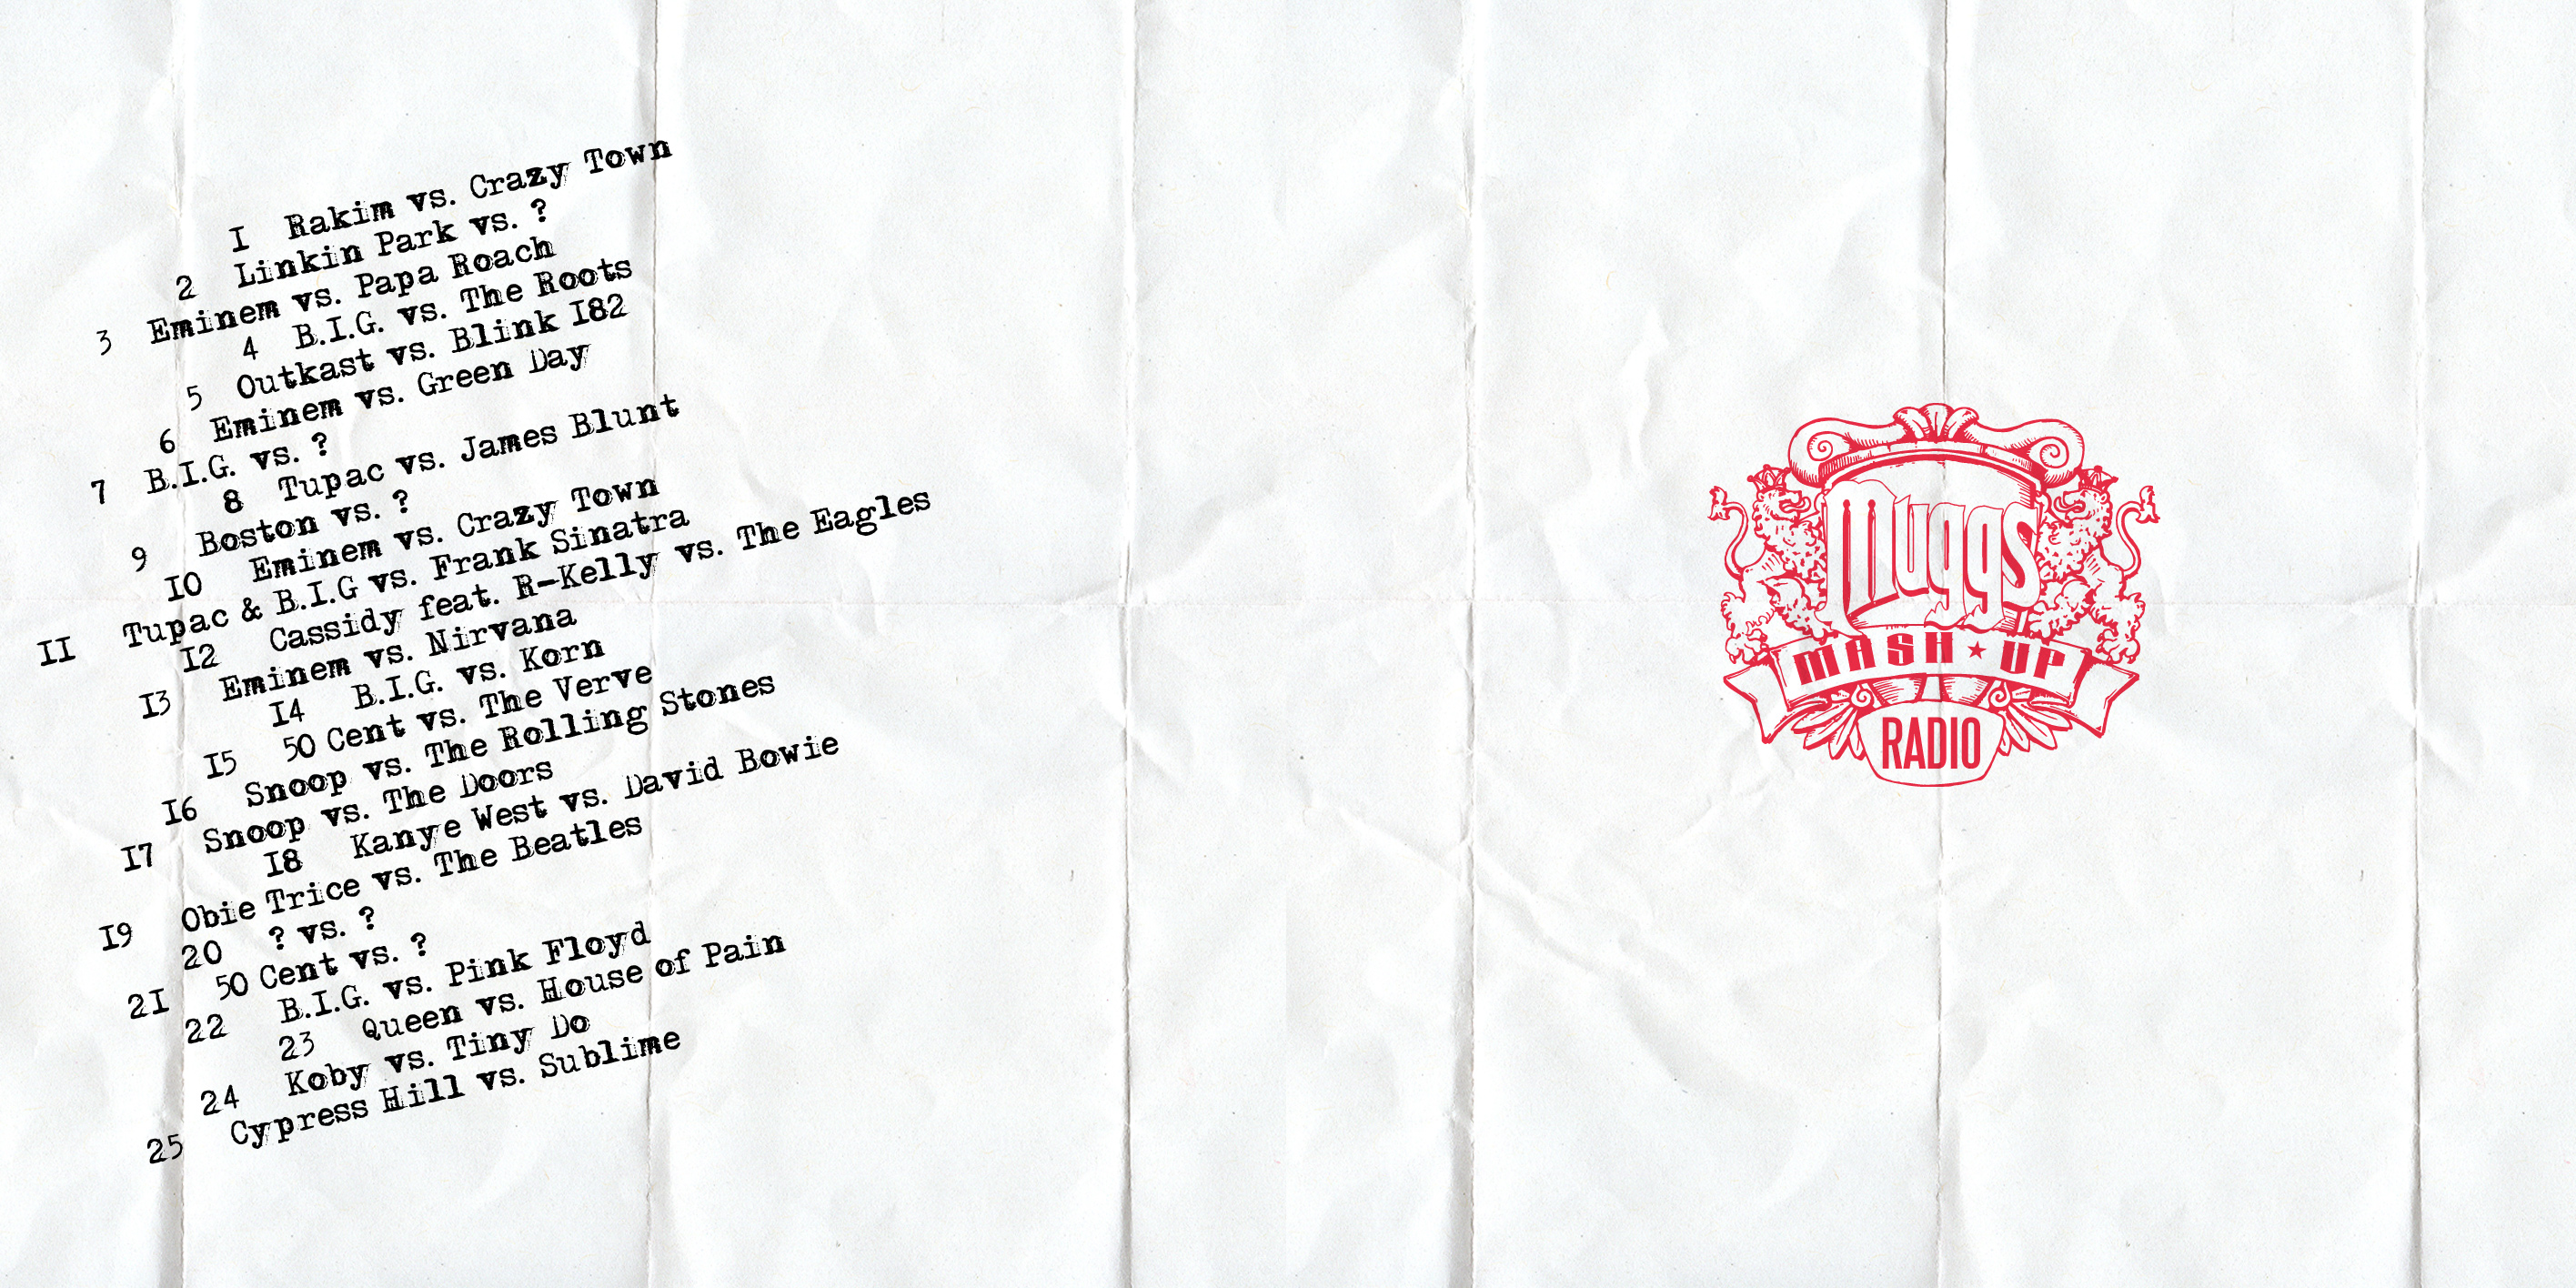 1 Rakim vs. Crazy Town
2 Linkin Park vs. ?
3 Eminem vs. Papa Roach
4 B.I.G. vs. The Roots
5 Outkast vs. Blink 182
6 Eminem vs. Green Day
7 B.I.G. vs. ?
8 Tupac vs. James Blunt
9 Boston vs. ?
10 Eminem vs. Crazy Town
11 Tupac & B.I.G vs. Frank Sinatra
12 Cassidy feat. R-Kelly vs. The Eagles
13 Eminem vs. Nirvana
14 B.I.G. vs. Korn
15 50 Cent vs. The Verve
16 Snoop vs. The Rolling Stones
17 Snoop vs. The Doors
18 Kanye West vs. David Bowie
19 Obie Trice vs. The Beatles
20 ? vs. ?
21 50 Cent vs. ?
22 B.I.G. vs. Pink Floyd
23 Queen vs. House of Pain
24 Koby vs. Tiny Do
25 Cypress Hill vs. Sublime
Muggs
MASH ★ UP
RADIO